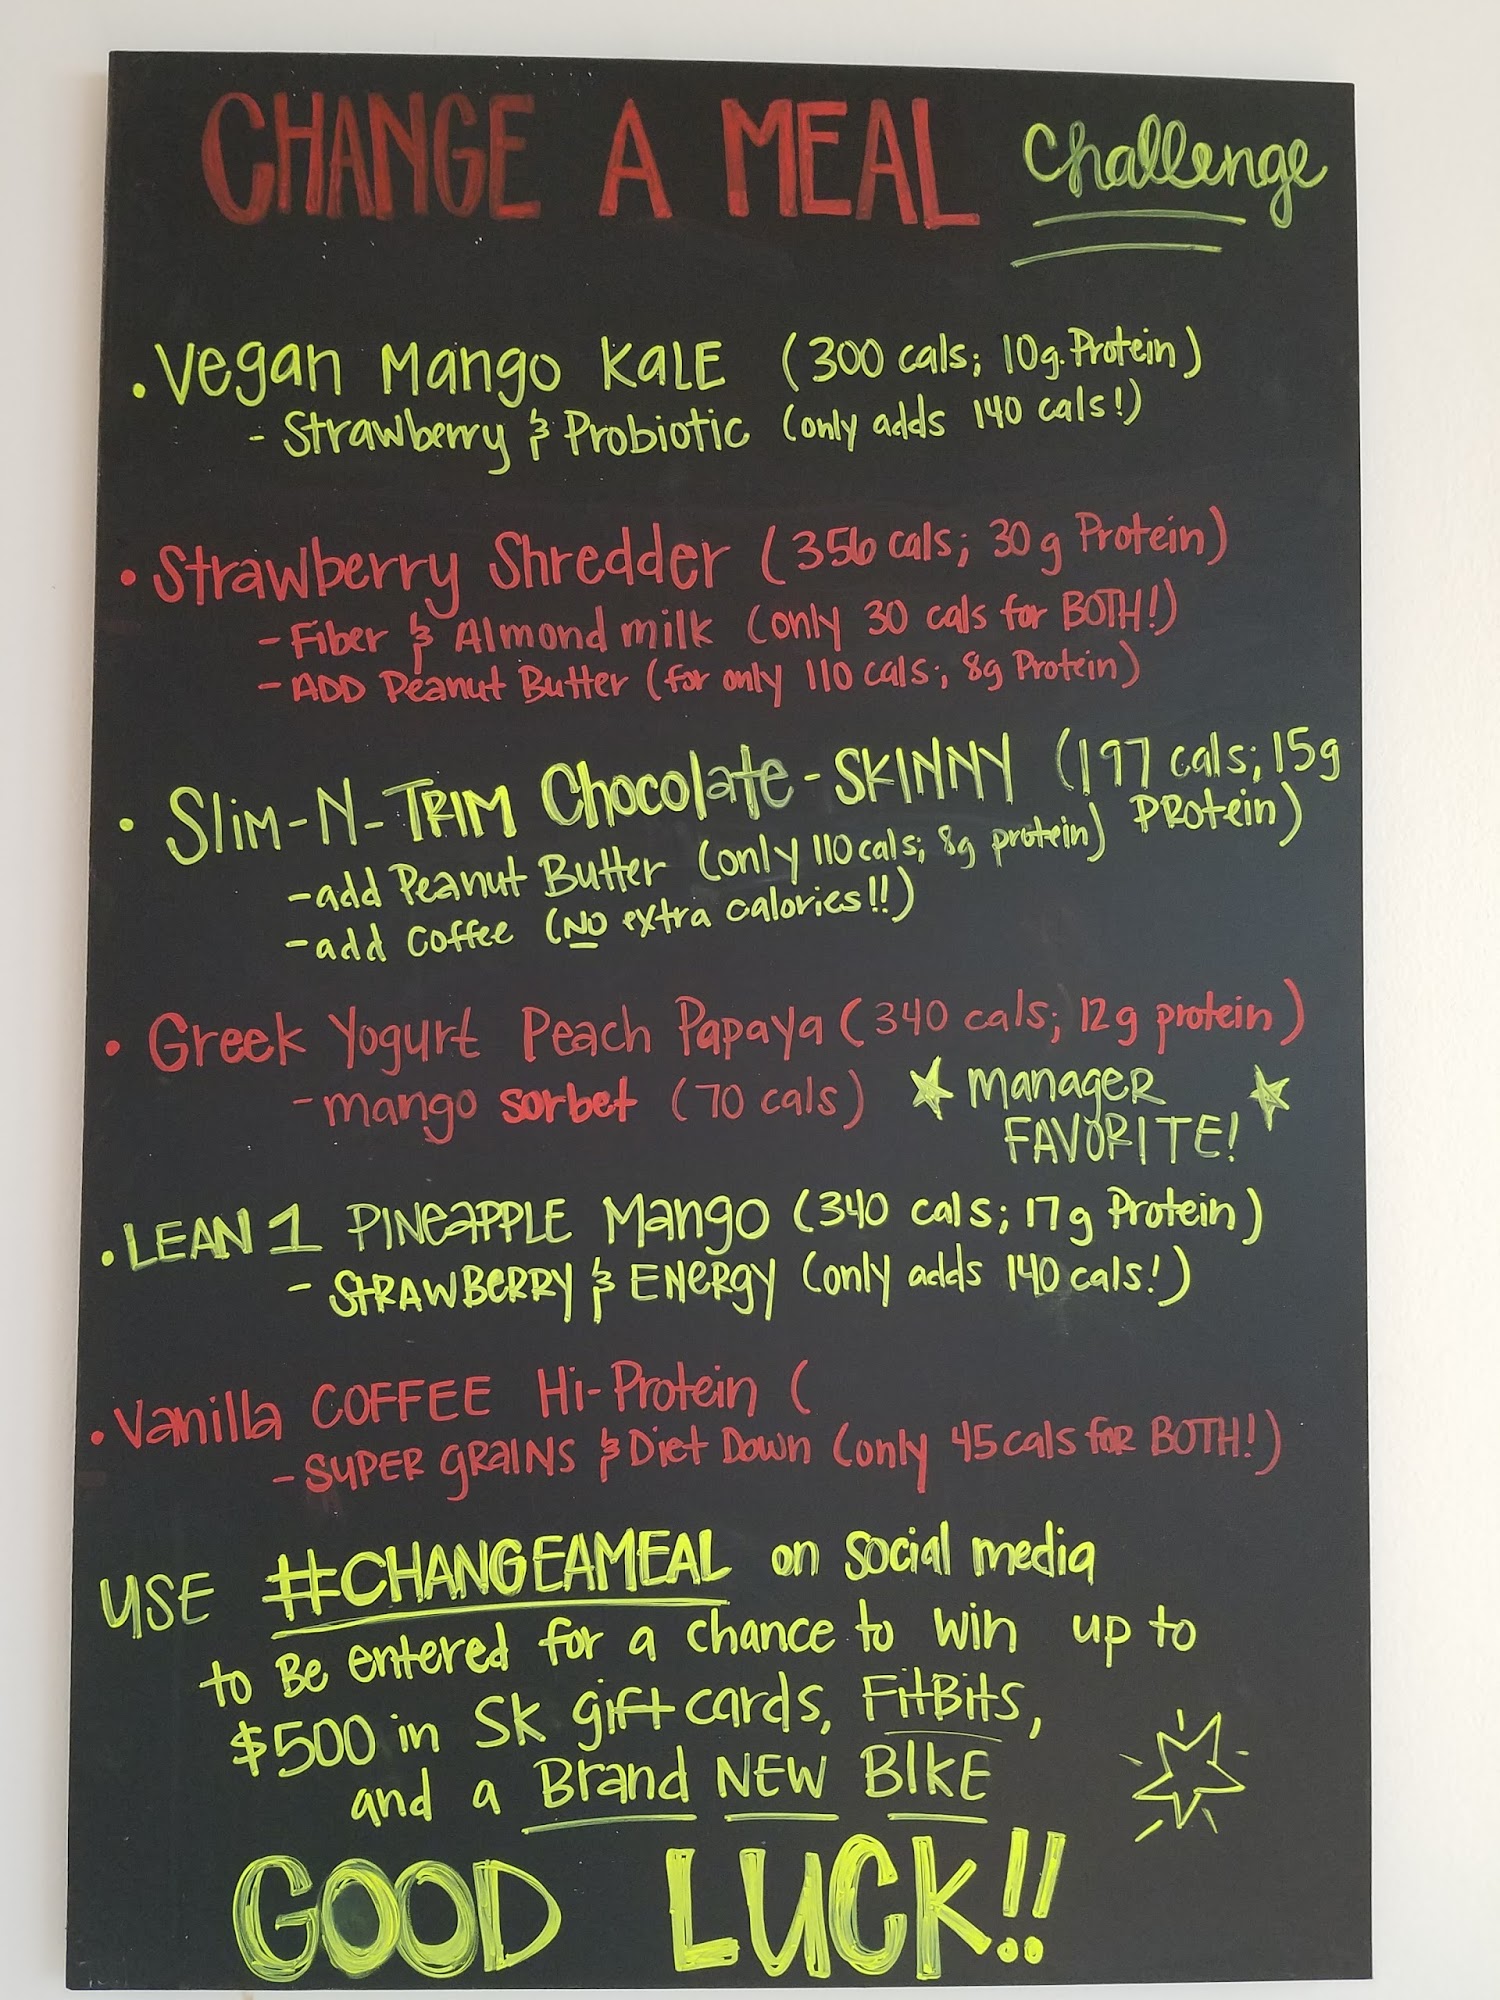 CHANGE A MEAL challenge
• Vegan Mango KALE (300 cals; 10g. Protein)
- Strawberry & Probiotic (only adds 140 cals!)
• Strawberry Shredder (356 cals; 30g Protein)
- Fiber & Almond milk (only 30 cals for BOTH!)
- ADD Peanut Butter (for only 110 cals; 8g Protein)
• Slim-N-TRIM Chocolate - SKINNY (197 cals; 15g PROtein)
- add Peanut Butter (only 110 cals; 8g protein)
- add coffee (NO extra calories!!)
• Greek Yogurt Peach Papaya (340 cals; 12g protein)
- mango sorbet (70 cals)
★ MANAGER ★
FAVORITE!
• LEAN 1 PINEAPPLE Mango (340 cals; 17g Protein)
- STRAWBERRY & ENERGY (only adds 140 cals!)
• Vanilla COFFEE Hi-Protein (
- SUPER GRAINS & Diet Down (only 45 cals for BOTH!)
USE #CHANGEAMEAL on social media
to Be entered for a chance to win up to
$500 in SK gift cards, FitBits,
and a Brand NEW BIKE
GOOD LUCK!!